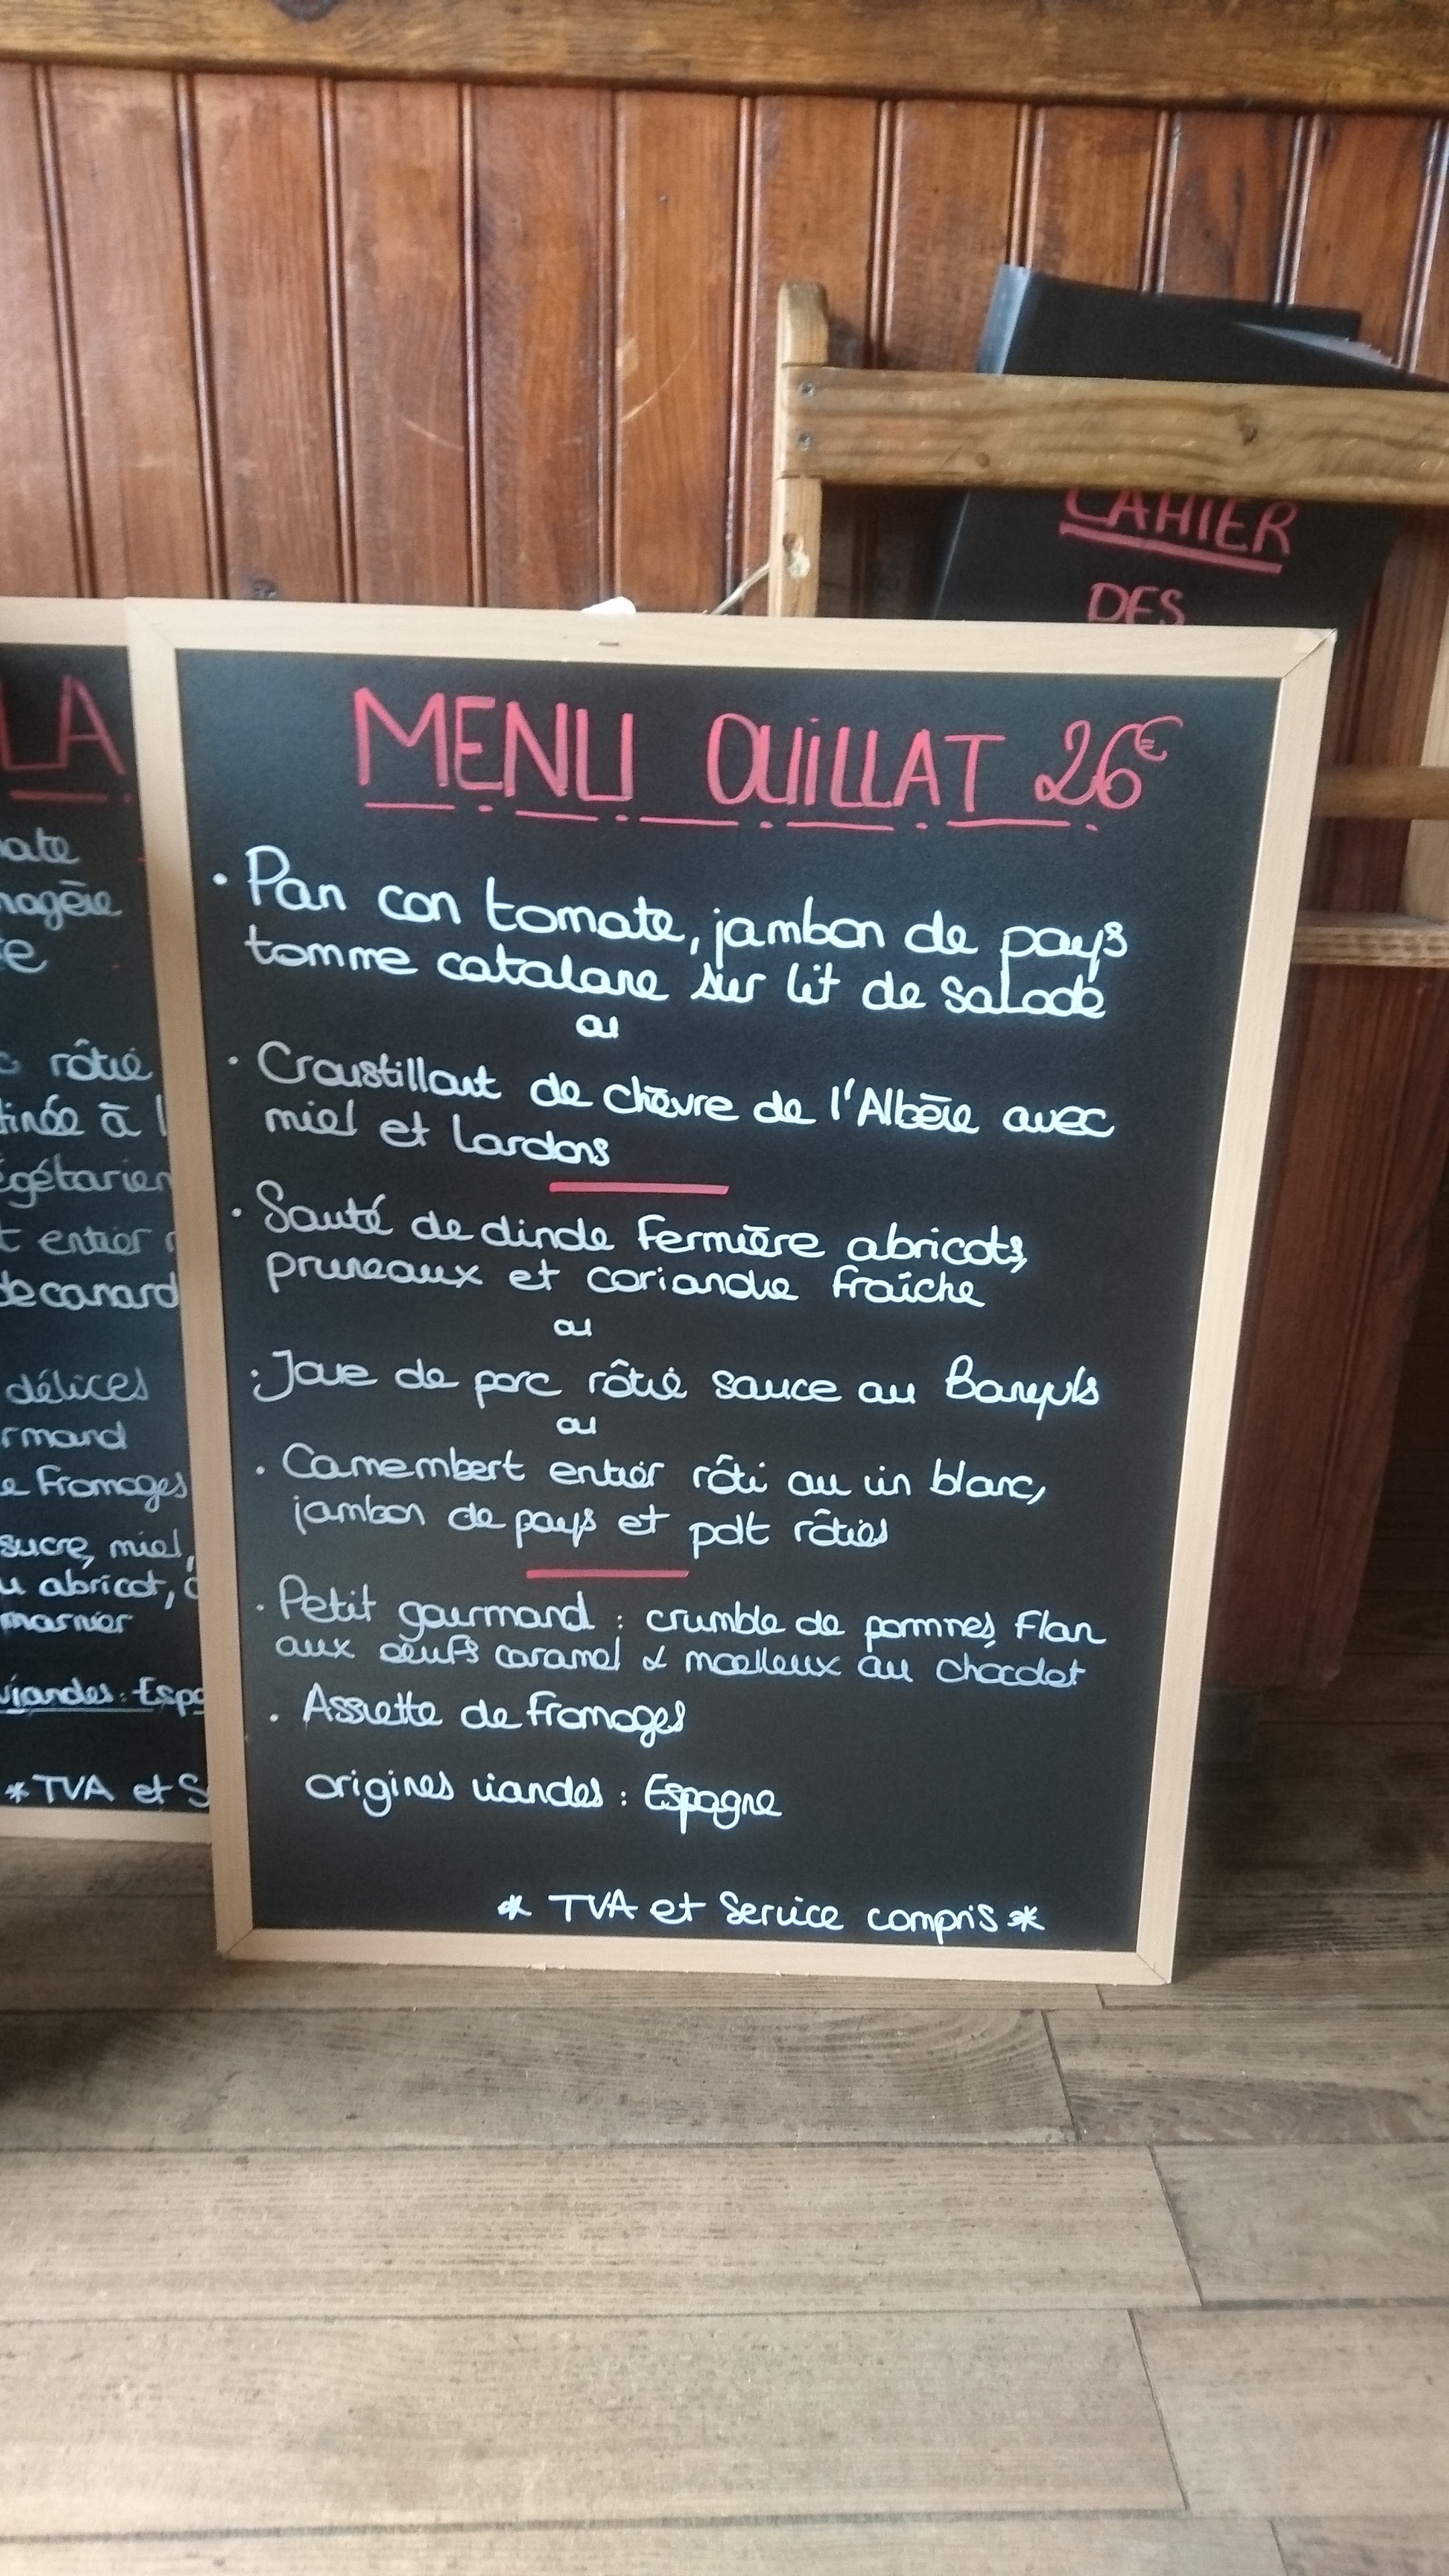 CAHIER
DES
MENU OUiLLAT 26€
• Pan con tomate, jambon de pays
tomme catalane sur lit de salade
ou
• Croustillant de chèvre de l'Albère avec
miel et lardons
• Sauté de dinde Fermière abricots,
pruneaux et coriandre fraîche
ou
• Joue de porc rôtie sauce au Banyuls
ou
• Camembert entier rôti au vin blanc,
jambon de pays et pdt rôties
• Petit gourmand : crumble de pommes, Flan
aux oeufs caramel & moelleux au chocolat
• Assiette de Fromages
origines viandes : Espagne
* TVA et Service compris *
LA
nate
nagère
te
rôtie
tinée à l
égétarien
t entier r
de canard
délices
rmand
e Fromages
sucre, miel,
u abricot, c
marnier
viandes : Espa
* TVA et S